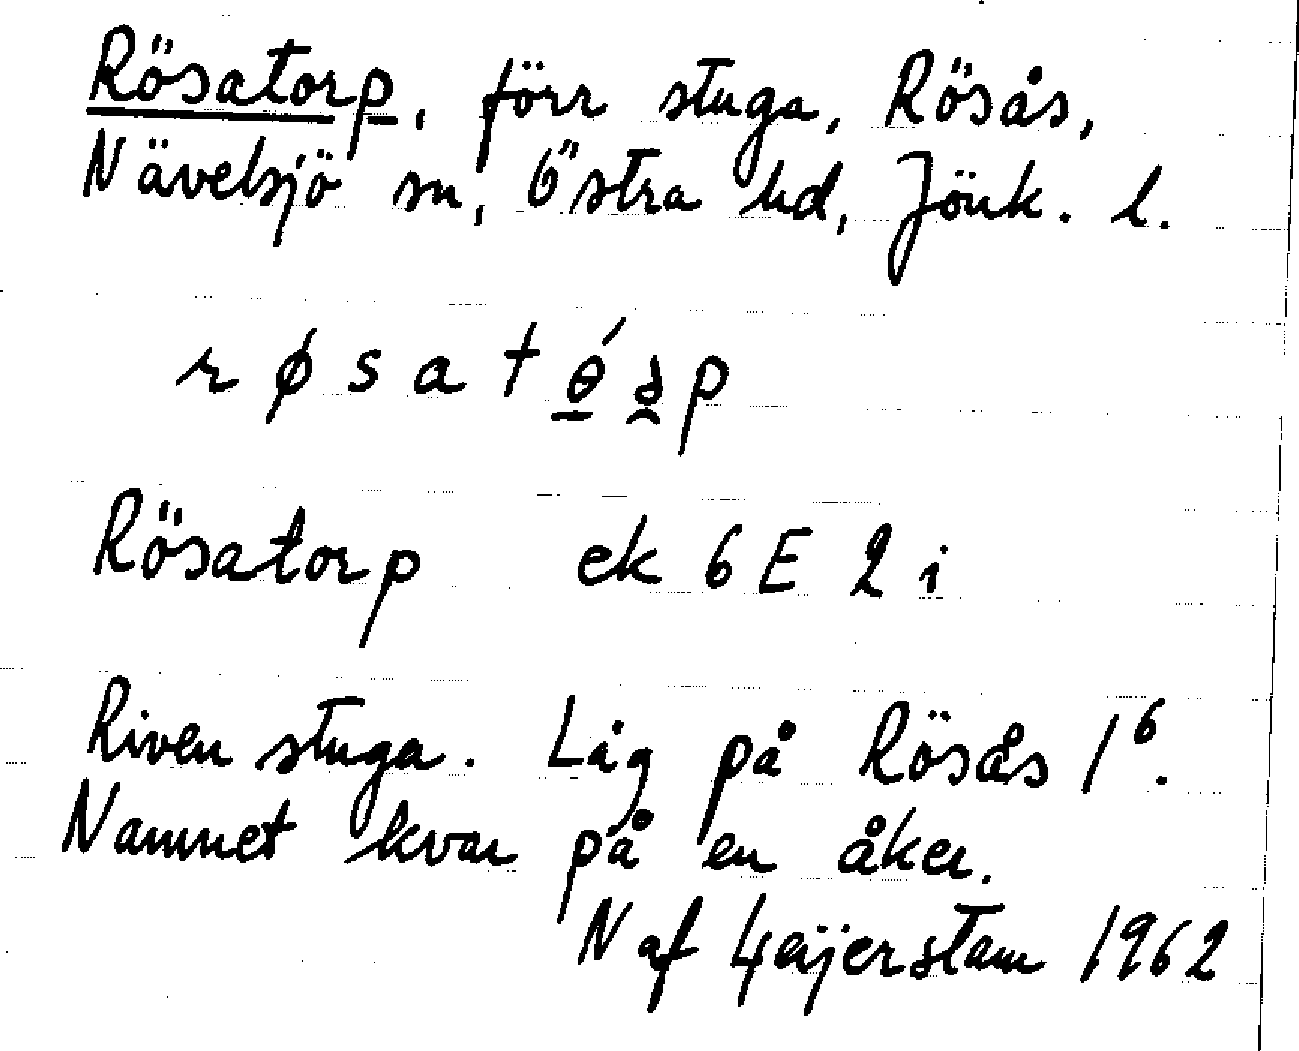 Rösatorp, förr stuga, Rösås,
Nävelsjö sn, Östra hd, Jönk. l.
r ø s a t
Rösatorp ek 6 E 2 i
Riven stuga. Låg på Rösås 1⁶.
Namnet kvar på en åker.
N af Geijerstam 1962